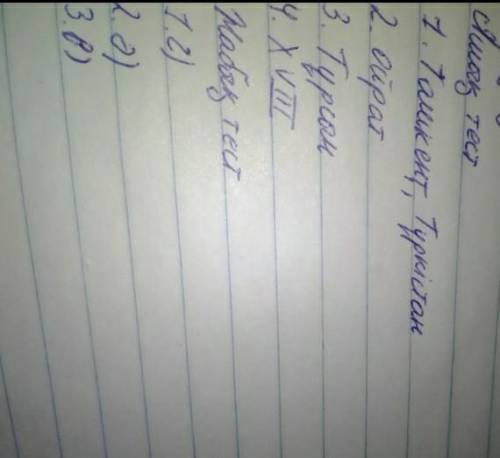 Ашық тест
1. Ташкент, Түркістан
2. ойрат
3. Тұрсын
4. XVIII
Жабық тест
1. г)
2. г)
3. в)